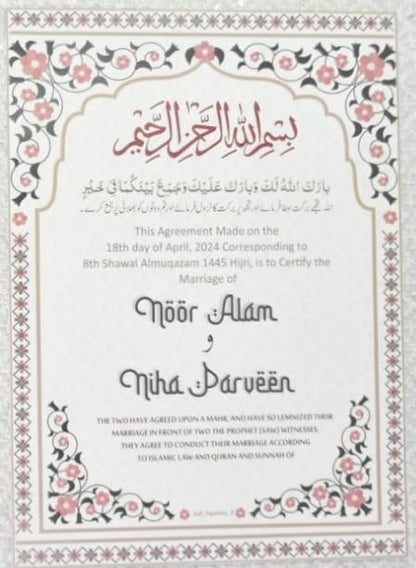 بِسْمِ اللهِ الرَّحْمٰنِ الرَّحِيْمِ
بَارَكَ اللهُ لَكَ وَبَارَكَ عَلَيْكَ وَجَمَعَ بَيْنَكُمَا فِي خَيْرٍ
اللہ تجھے برکت عطا فرمائے اور تجھ پر برکت کا نزول فرمائے اور تم دونوں کو بھلائی پر جمع کرے۔
This Agreement Made on the
18th day of April, 2024 Corresponding to
8th Shawal Almuqazam 1445 Hijri, is to Certify the
Marriage of
Nöör Alam
و
Niha Parvëën
THE TWO HAVE AGREED UPON A MAHR, AND HAVE SO LEMNIZED THEIR
MARRIAGE IN FRONT OF TWO THE PROPHET (SAW) WITNESSES,
THEY AGREE TO CONDUCT THEIR MARRIAGE ACCORDING
TO ISLAMIC LAW AND QURAN AND SUNNAH OF